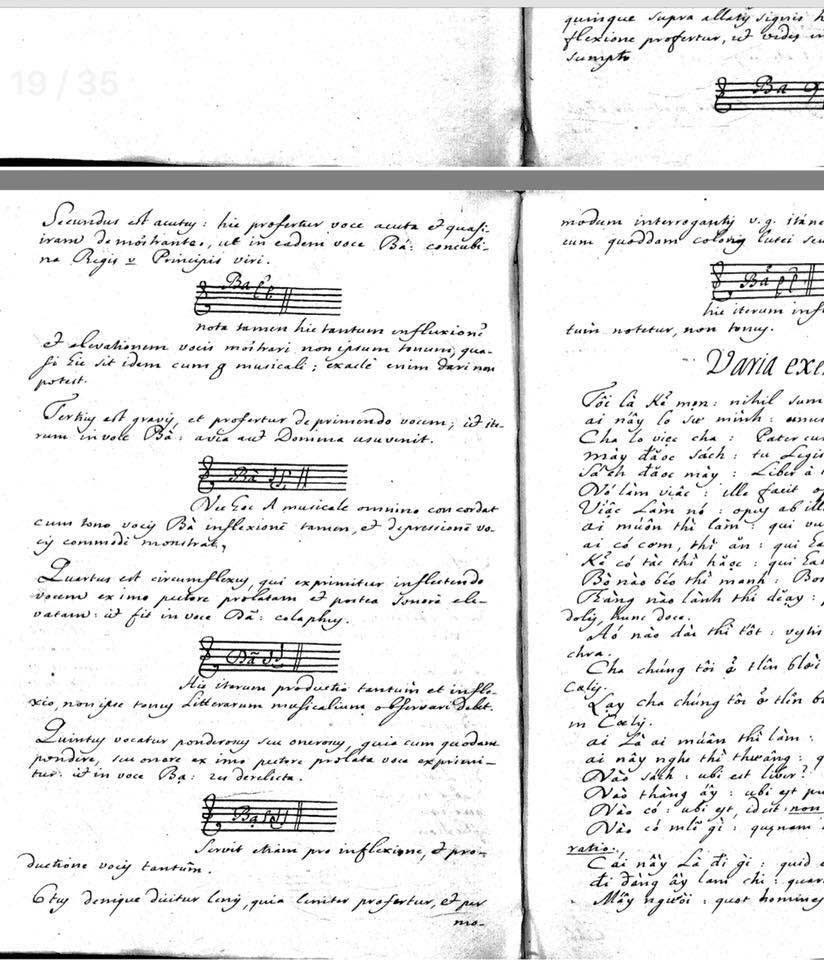 19 / 35
quinque supra allatis signis
flexione profertur, ut vides in
sumpto
Ba
Secundus est acutus: hic profertur voce acuta & quasi-
iram demonstrante, ut in eadem voce Bá: concubi-
na Regis v Principis viri.
Bá
nota tamen hic tantum influxionē
et elevationem vocis monstrari non ipsum tonum, qua-
si hic sit idem cum g musicali; exacte enim dari non
potest.
Tertius est gravis, et profertur deprimendo vocem, ut ite-
rum in voce Bà: avia aut Domina usu venit.
Bà
Nec hoc A musicale omnino concordat
cum tono vocis Bà inflexionē tamen, & depressionē vo-
cis commode monstrat,
Quartus est circumflexus, qui exprimitur inflectendo
vocem ex imo pectore prolatam & postea sonorē ele-
vatam: ut fit in voce Bã: colaphus.
Bã
Hic iterum productio tantum et infle-
xio, non ipse tonus Litterarum musicalium observari debet.
Quintus vocatur ponderosus seu onerosus, quia cum quodam
pondere, seu onere ex imo pectore prolata voce exprimi-
tur: ut in voce Bạ: res derelicta.
Bạ
Servit etiam pro inflexione, & pro-
ductione vocis tantum.
6tus denique dicitur lenis, quia leniter profertur, & per
mo-
modum interrogantis v. g. itáne
cum quoddam
Bả
hic iterum
tum notetur, non tonus.
Varia
Tôi là kẻ mọn: nihil sum
ai nấy lo sự mình:
Cha lo viẹc cha: Pater
mày đăọc sách: tu Legis
sách đăọc mày: Liber à
Nó làm viâc: ille facit
Viâc Làm nó: opus ab
ai muôn thì làm: qui
ai có cơm, thì ăn: qui
Kẻ có tác thì hăọc: qui
Bò nào béo thì mạnh:
Thàng nào lành thì dĕạy:
dolis, hunc doce.
Aó nào dài thì tôt:
chra.
Cha chúng tôi ở tlên blời
Cœlis.
Lạy cha chúng tôi ở tlên
in Cœlis.
ai Là ai muân thì làm:
ai nấy nghe thì thưâng:
Nào sách: ubi est liber?
Nào thàng ấy: ubi est
Nào có: ubi est, id est non
Nào có mlẽ gì: quænam
ratio.
Cái nầy Là đí gì: quid
đi đàng ấy lam chi:
Mấy người: quot homines